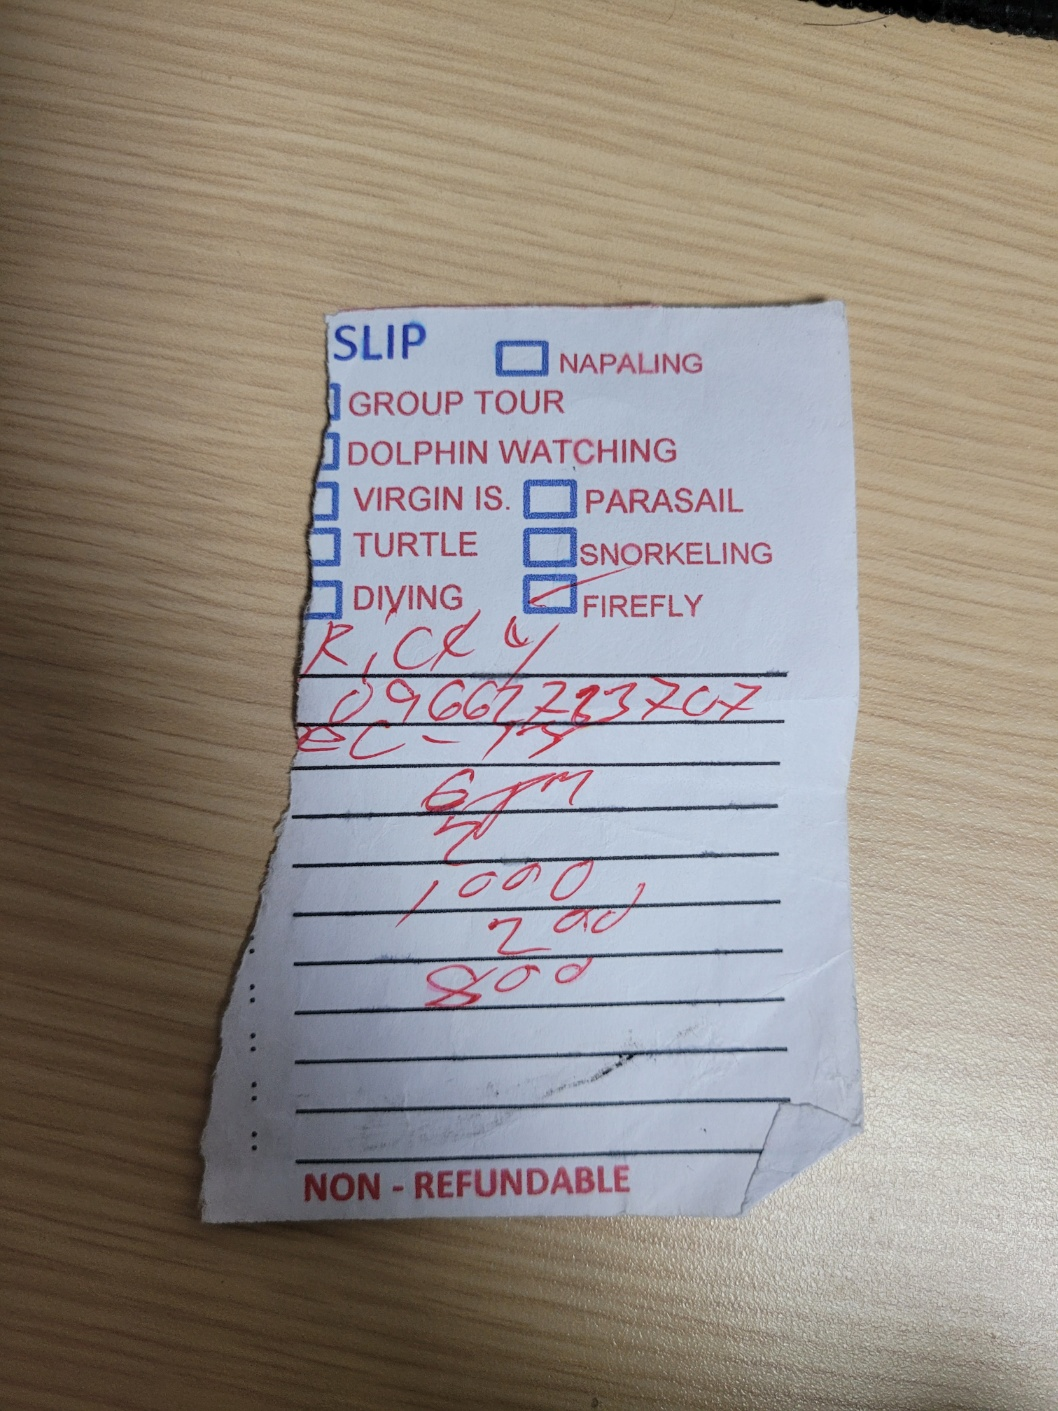 SLIP
NAPALING
GROUP TOUR
DOLPHIN WATCHING
VIRGIN IS. PARASAIL
TURTLE SNORKELING
DIVING FIREFLY
RICKY
6pm
1000
200
800
NON - REFUNDABLE